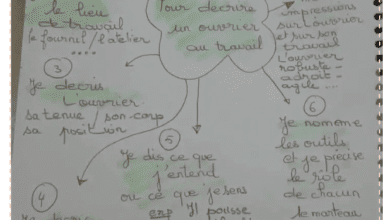 le lieu
de travail
le fournil / l'atelier
....
Pour décrire
un ouvrier
au travail
impressions
sur l'ouvrier
et sur son
travail
L'ouvrier
robuste
adroit
agile ....
3
Je décris
L'ouvrier
sa tenue / son corps
sa position
5
Je dis ce que
j'entend
ou ce que je sens
Il pousse
6
Je nomme
les outils
et je précise
le rôle
de chacun
le marteau
4